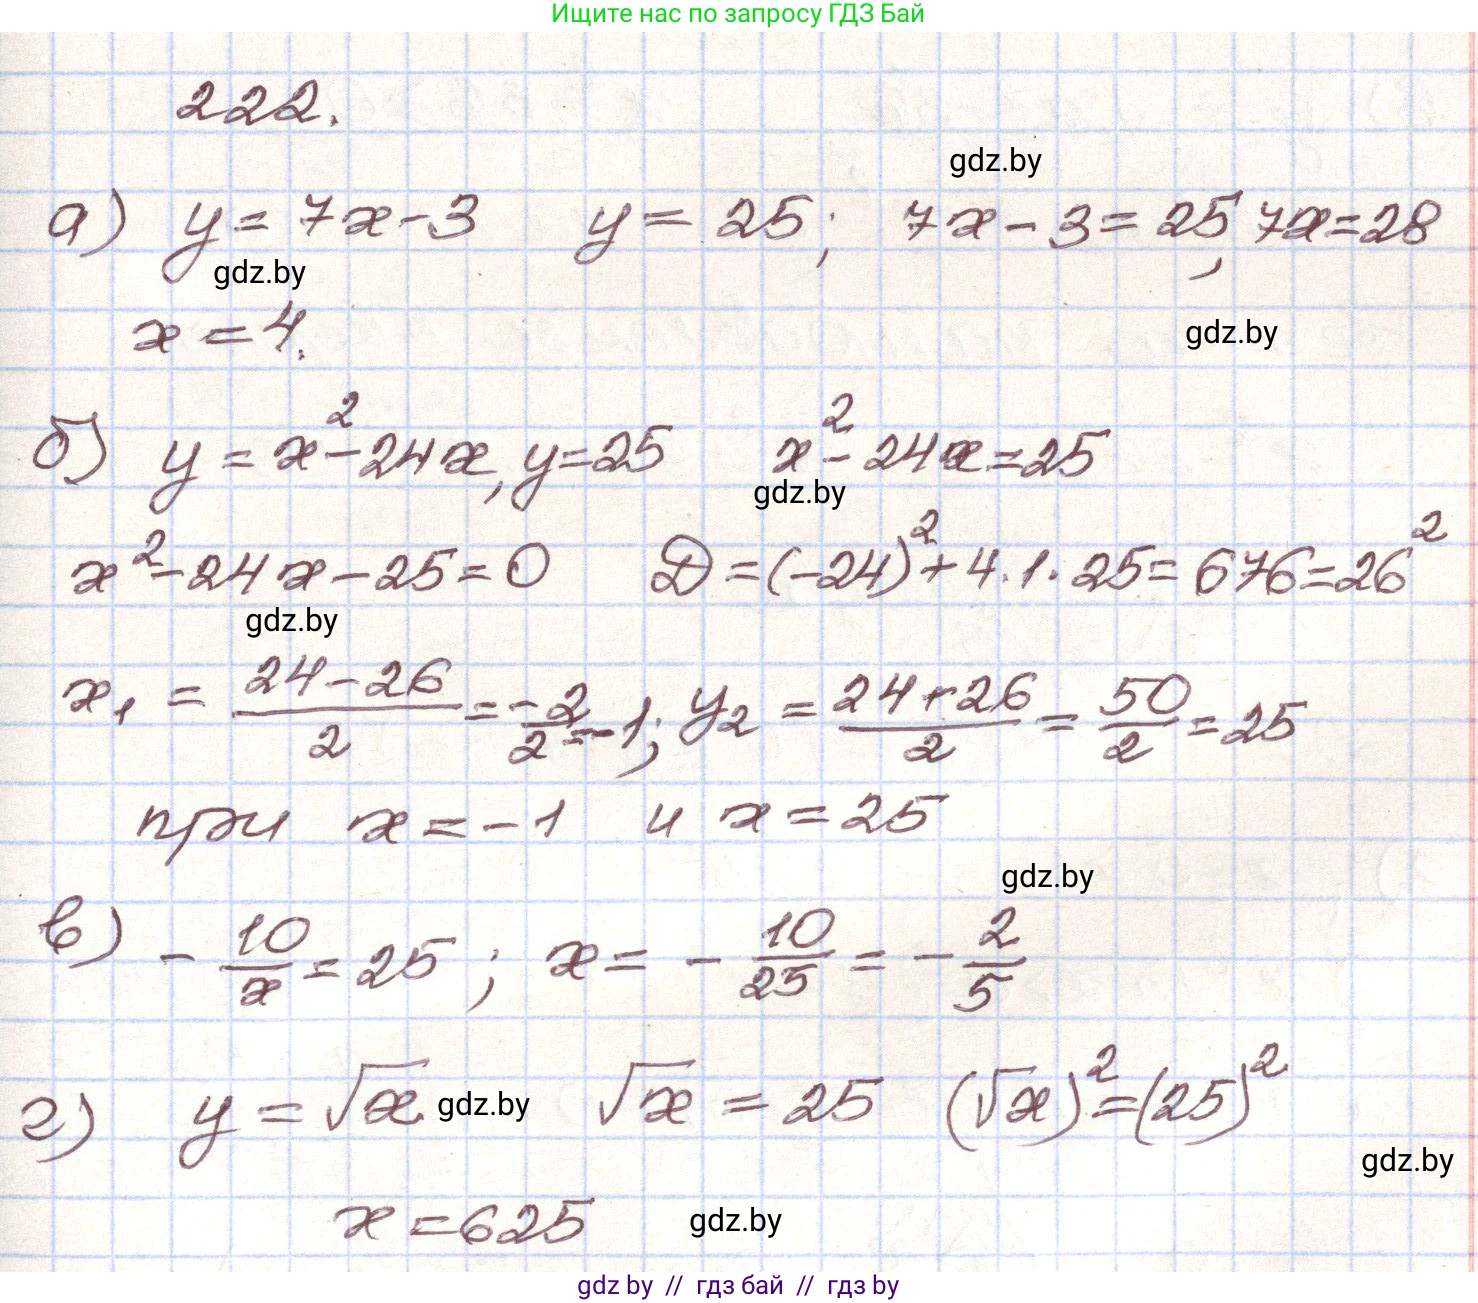 Ищите нас по запросу ГДЗ Бай
222.
gdz.by
а) y = 7x - 3 y = 25; 7x - 3 = 25, 7x = 28
gdz.by
x = 4.
gdz.by
б) y = x² - 24x, y = 25 x² - 24x = 25
gdz.by
x² - 24x - 25 = 0 D = (-24)² + 4 · 1 · 25 = 676 = 26²
gdz.by
x₁ = (24 - 26)/2 = -2/2 = -1; y₂ = (24 + 26)/2 = 50/2 = 25
при x = -1 и x = 25
gdz.by
в) - 10/x = 25; x = - 10/25 = - 2/5
г) y = √x gdz.by √x = 25 (√x)² = (25)²
gdz.by
x = 625 gdz.by
gdz by // гдз бай // гдз by